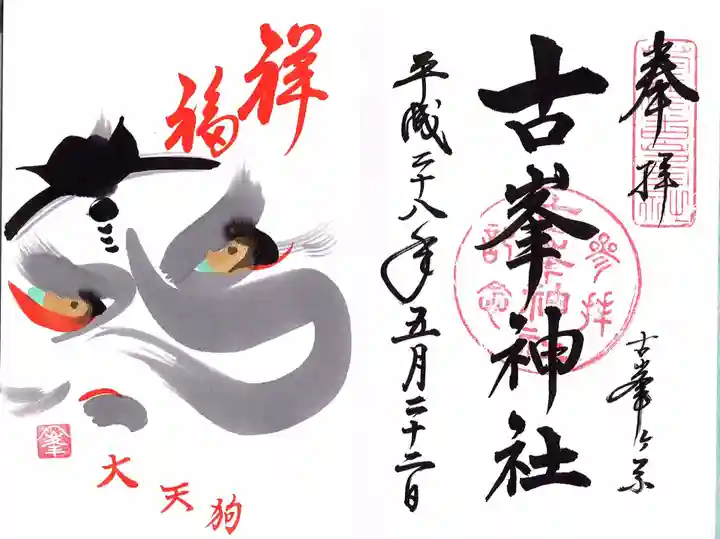 奉拝
古峯ヶ原
古峯神社
参拝記念
平成二十八年五月二十二日
祥福
大天狗
峯